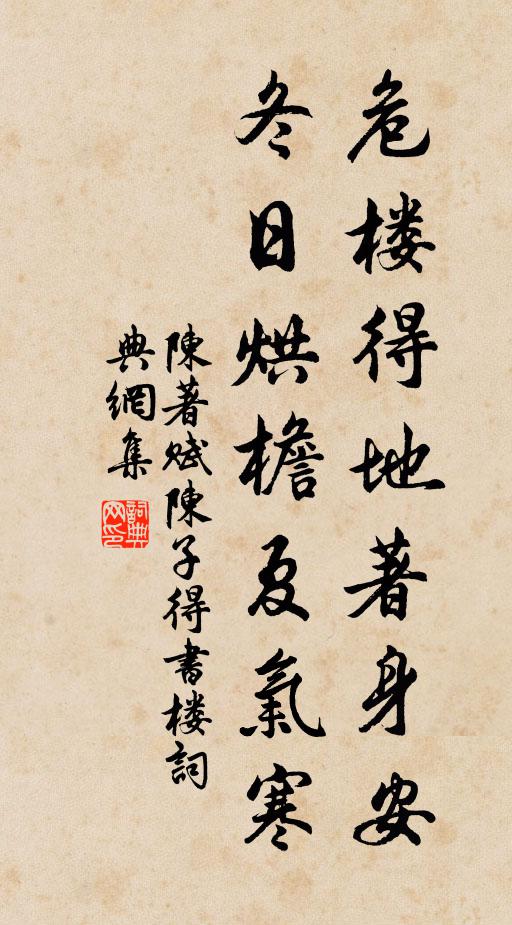 危楼得地著身安
冬日烘檐夏氣寒
陳著賦陳子得書楼詞
典網集
詞典网印